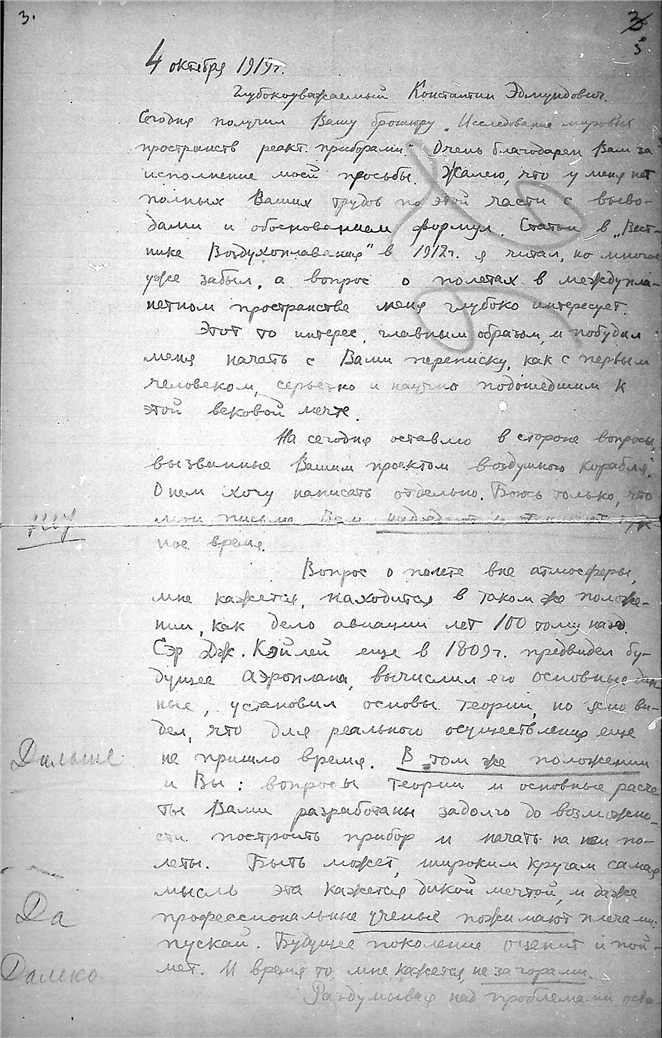 3.
3
5
4 октября 1919г.
Глубокоуважаемый Константин Эдмундович.
Сегодня получил Вашу брошюру „Исследование мировых
пространств реакт. приборами." Очень благодарен Вам за
исполнение моей просьбы. Жалею, что у меня нет
полных Ваших трудов по этой части с выво-
дами и обоснованием формул. Статьи в „Вест-
нике Воздухоплавания" в 1912г. я читал, но многое
уже забыл, а вопрос о полетах в междупла-
нетном пространстве меня глубоко интересует.
Этот то интерес, главным образом, и побудил
меня начать с Вами переписку, как с первым
человеком, серьезно и научно подошедшим к
этой вековой мечте.
На сегодня оставлю в стороне вопросы
вызванные Вашим проектом воздушного корабля.
О нем хочу написать отдельно. Боюсь только, что
мои письма Вам надоедают и отнимают
ное время.
Вопрос о полете вне атмосферы,
мне кажется, находится в таком же положе-
нии, как дело авиации лет 100 тому назад.
Сэр Дж. Кэйлей еще в 1809г. предвидел бу-
дущее аэроплана, вычислил его основные дан-
ные, установил основы теории, но ясно ви-
дел, что для реального осуществления еще
не пришло время. В том же положении
Дальше
и Вы: вопросы теории и основные расче-
ты Вами разработаны задолго до возможно-
сти построить прибор и начать на нем по-
леты. Быть может, широким кругам самая
мысль эта кажется дикой мечтой, и даже
Да
профессиональные ученые пожимают плечами:
пускай. Будущее поколение оценит и пой-
Далеко
мет. И время то, мне кажется не за горами.
Раздумывая над проблемами осва-